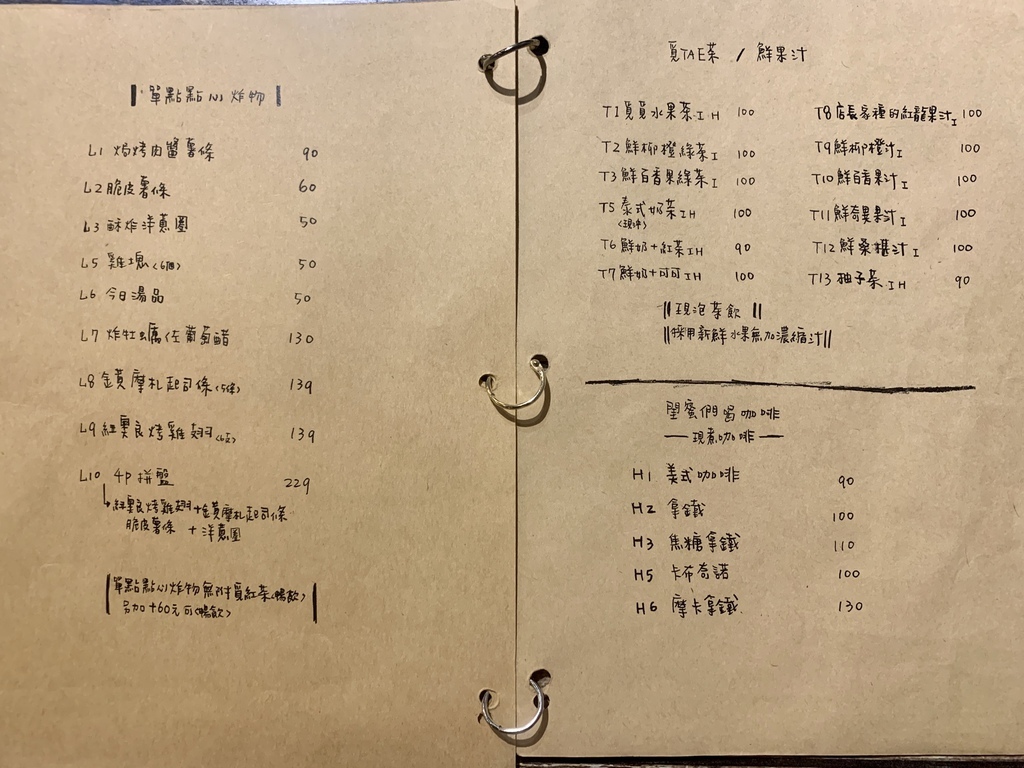 單點點心炸物
L1 焗烤肉醬薯條 90
L2 脆皮薯條 60
L3 酥炸洋蔥圈 50
L5 雞塊(6個) 50
L6 今日湯品 50
L7 炸牡蠣佐葡萄醋 130
L8 金黃摩札起司條(5條) 139
L9 紐奧良烤雞翅(6支) 139
L10 4P拼盤 229
紐奧良烤雞翅+金黃摩札起司條
脆皮薯條 + 洋蔥圈
單點點心炸物無附覓紅茶(暢飲)
另加+60元可(暢飲)
覓TAE茶 / 鮮果汁
T1 覓覓水果茶 I H 100
T2 鮮柳橙綠茶 I 100
T3 鮮百香果綠茶 I 100
T5 泰式奶茶 I H 100
(現沖)
T6 鮮奶+紅茶 I H 90
T7 鮮奶+可可 I H 100
T8 店長家種的紅龍果汁 I 100
T9 鮮柳橙汁 I 100
T10 鮮百香果汁 I 100
T11 鮮奇異果汁 I 100
T12 鮮桑椹汁 I 100
T13 柚子茶 I H 90
現泡茶飲
採用新鮮水果無加濃縮汁
閨蜜們喝咖啡
現煮咖啡
H1 美式咖啡 90
H2 拿鐵 100
H3 焦糖拿鐵 110
H5 卡布奇諾 100
H6 摩卡拿鐵 130